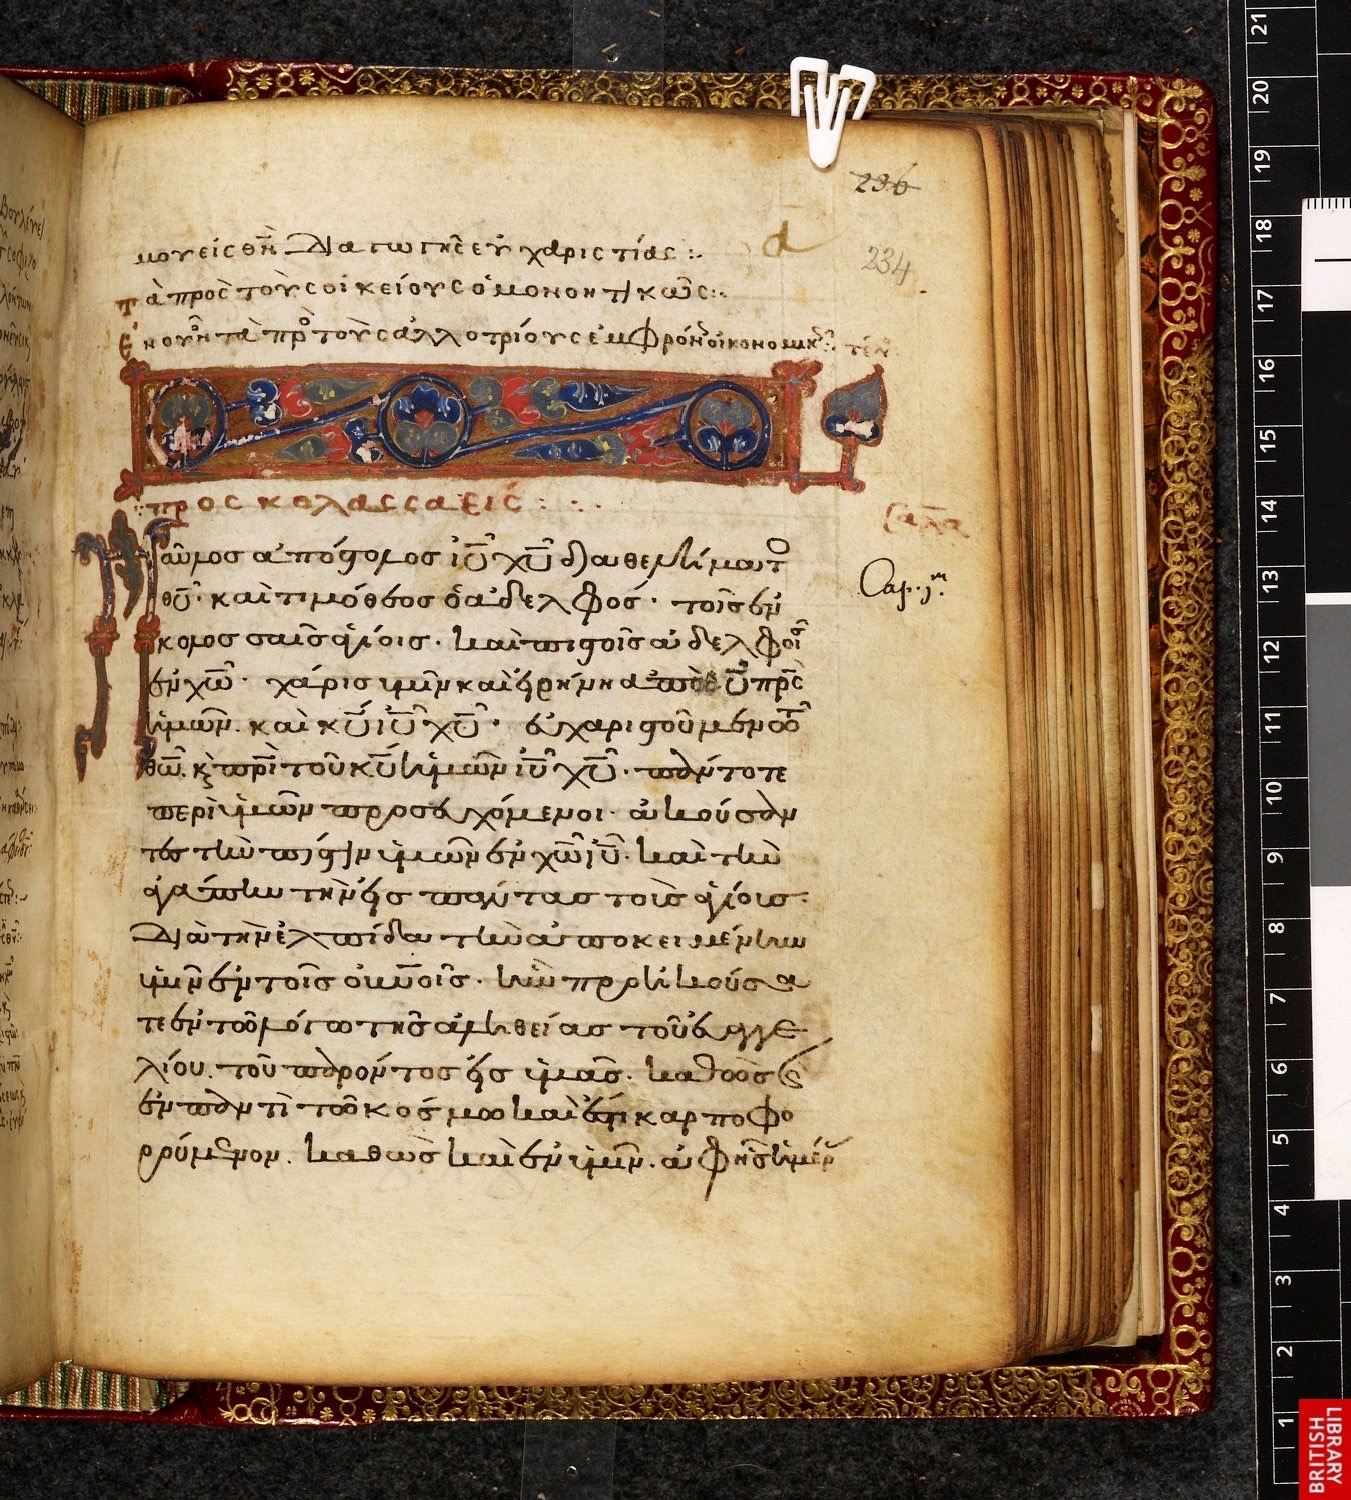 236
α
234
μου εἰς θν̅ διὰ τῶ τῆς εὐχαριστίας :.
τὰ πρὸς τοὺς οἰκείους ὁμονοητικῶς :.
πρὸς κολασσαεῖς :
παῦλος ἀπόστολος ιυ̅ χυ̅ διὰ θελήματο
θυ̅· καὶ τιμόθεος ὁ ἀδελφός· τοῖς ἐν
κολοσσαῖς ἁγίοις· καὶ πιστοῖς ἀδελφοῖς
Cap. j.m
ἐν χω̅· χάρις ὑμῖν καὶ εἰρήνη ἀπὸ θυ̅ πρς̅
ἡμῶν· καὶ κυ̅ ιυ̅ χυ̅· εὐχαριστοῦμεν τῶ
θω̅ κ̀ πρι̅ τοῦ κυ̅ ἡμῶν ιυ̅ χυ̅· πάντοτε
περὶ ὑμῶν προσευχόμενοι· ἀκούσαν
τες τὴν πίστιν ὑμῶν ἐν χω̅ ιυ̅· καὶ τὴν
ἀγάπην τὴν εἰς πάντας τοὺς ἁγίους·
διὰ τὴν ἐλπίδα τὴν ἀποκειμένην
ὑμῖν ἐν τοῖς οὐνοῖς· ἣν προηκούσα
τε ἐν τῶ λόγω τῆς ἀληθείας τοῦ εὐαγγε
λίου· τοῦ παρόντος εἰς ὑμᾶς· καθὼς
ἐν παντὶ τῶ κόσμω καὶ ἔστι καρποφο
ρούμενον· καθὼς καὶ ἐν ὑμῖν· ἀφ' ἧς ἡμέρ
21
20
19
18
17
16
15
14
13
12
11
10
9
8
7
6
5
4
3
2
1
BRITISH
LIBRARY